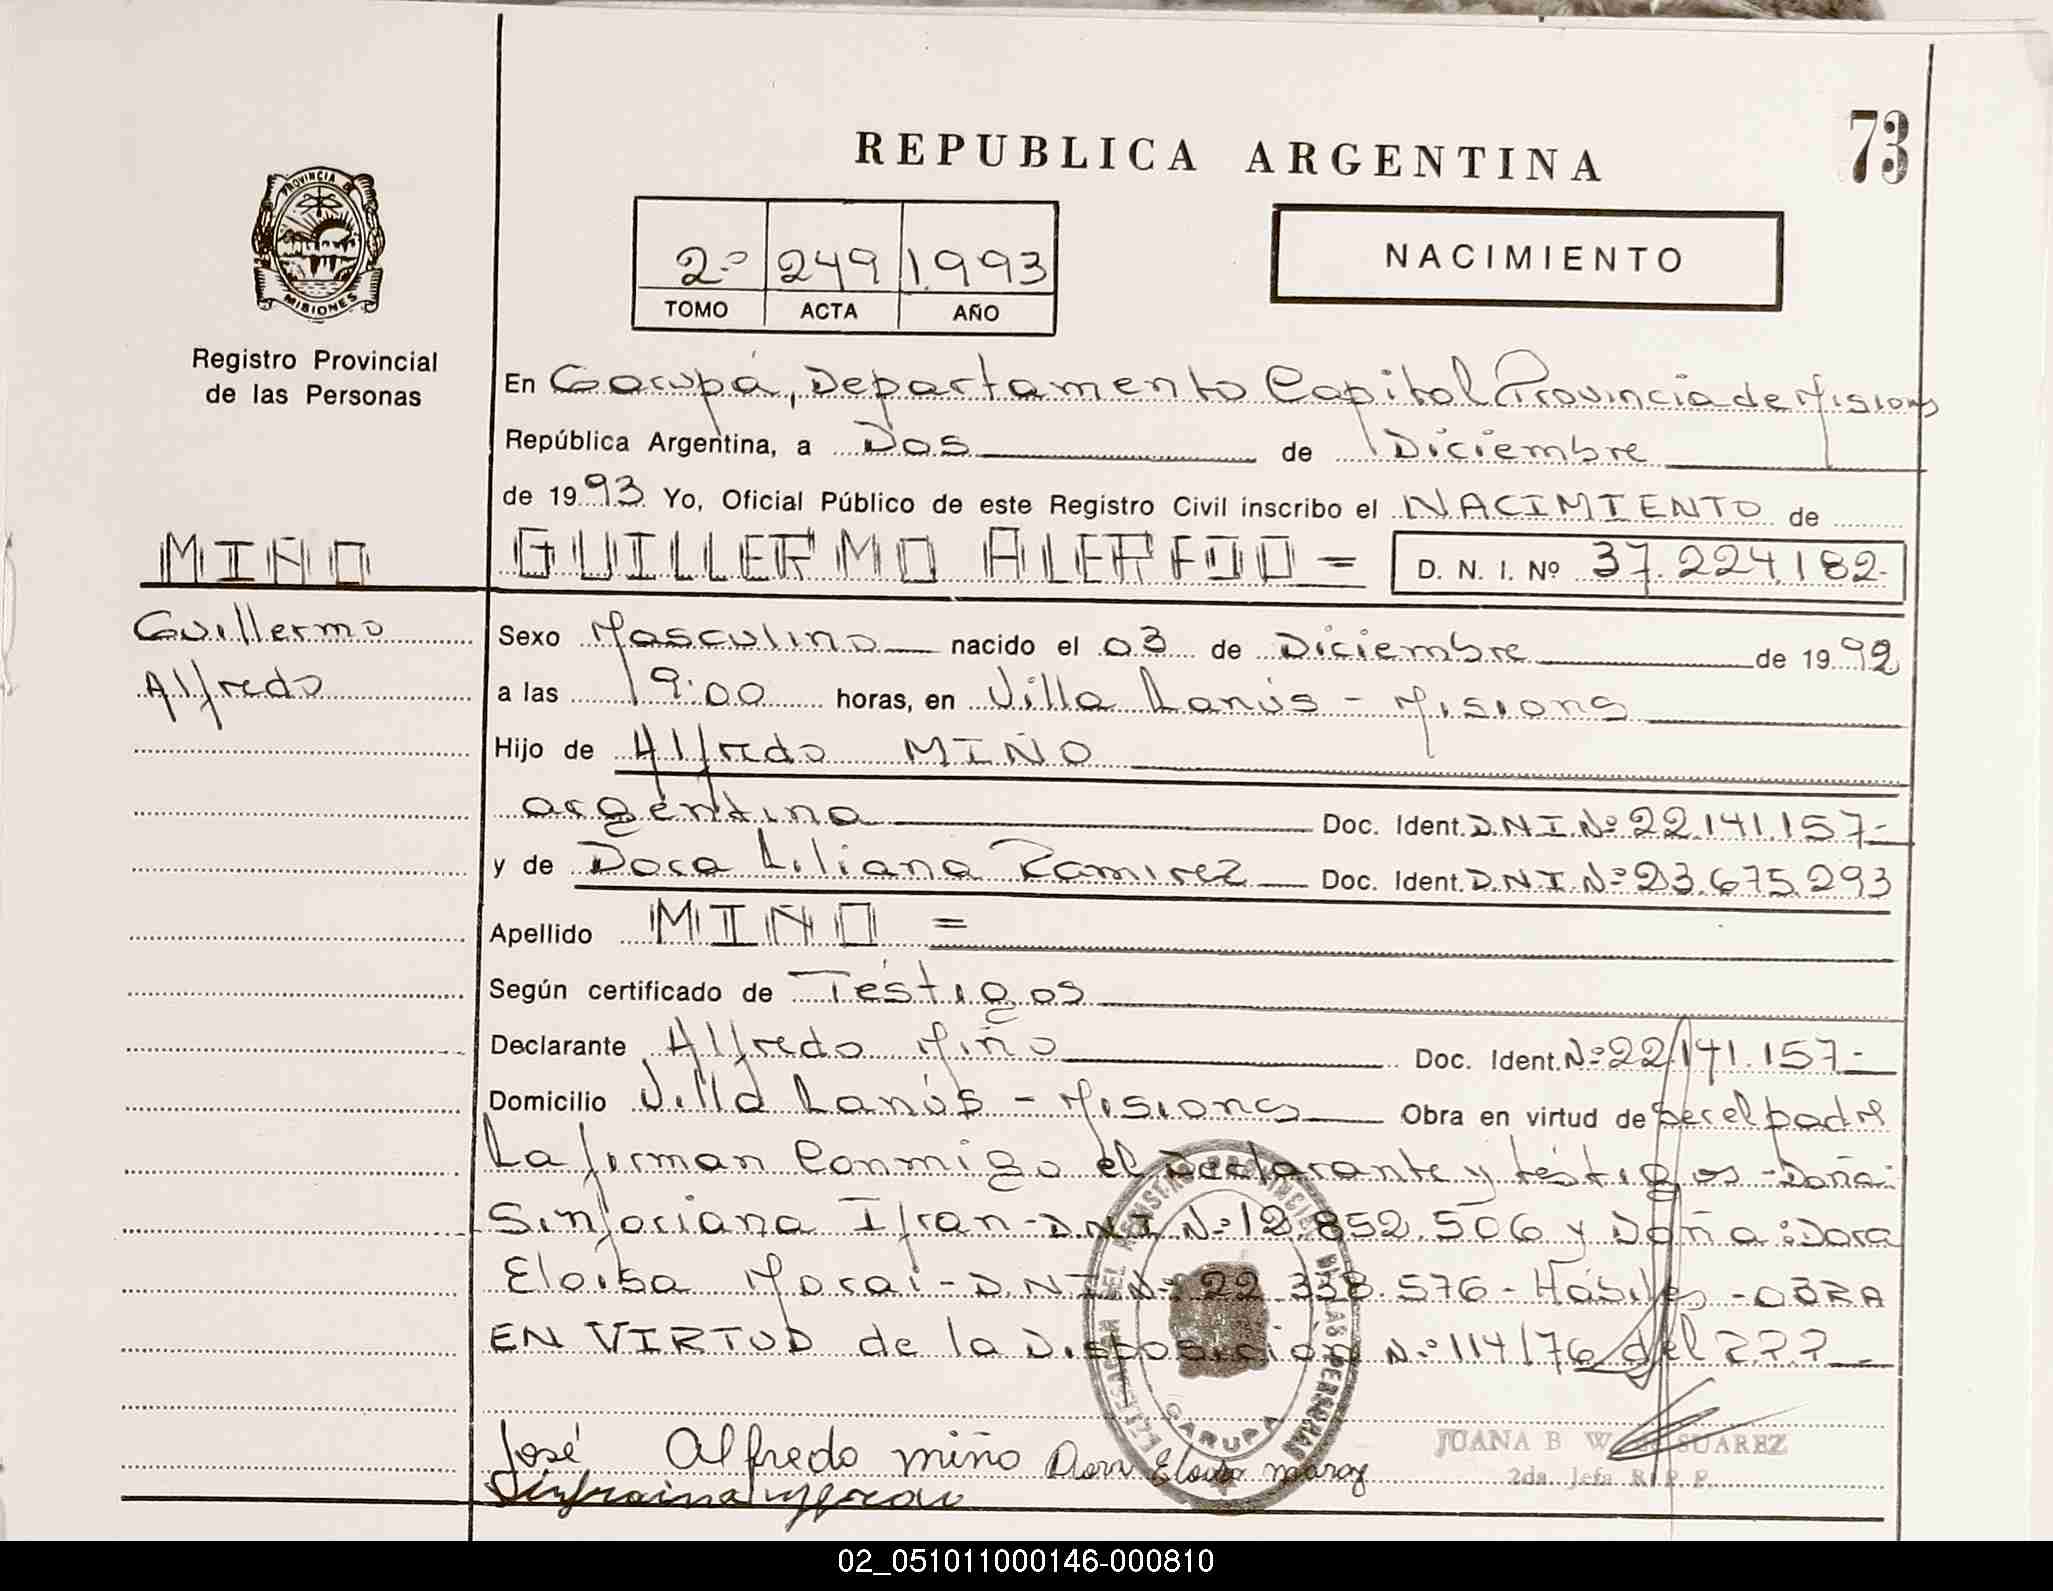 73
REPUBLICA ARGENTINA
PROVINCIA DE
MISIONES
2º 249 1.993
NACIMIENTO
TOMO ACTA AÑO
Registro Provincial
de las Personas
En Garupá, Departamento Capital Provincia de Misiones
República Argentina, a Dos de Diciembre
de 1993 Yo, Oficial Público de este Registro Civil inscribo el NACIMIENTO de
MIÑO GUILLERMO ALFREDO = D. N. I. Nº 37.224.182-
Guillermo Sexo Masculino nacido el 03 de Diciembre de 1992
Alfredo a las 19:00 horas, en Villa Lanús - Misiones
Hijo de Alfredo MIÑO
argentino Doc. Ident. DNI Nº 22.141.157-
y de Dora Liliana Ramirez Doc. Ident. DNI Nº 23.675.293
Apellido MIÑO =
Según certificado de Téstigos
Declarante Alfredo Miño Doc. Ident. Nº 22.141.157-
Domicilio Villa Lanús - Misiones Obra en virtud de ser el padre
La firman Conmigo el Declarante y téstigos - Doña:
Sinforiana Ifran - DNI Nº 12.852.506 y Doña: Dora
Eloisa Morai - DNI Nº 22.338.576 - Hábiles - OBRA
EN VIRTUD de la Disposición Nº 114/76 del
José Alfredo miño Eloisa
JUANA B. W. SUAREZ
2da. Jefa R.P.P.
DELEGACION DEL REGISTRO PROVINCIAL DE LAS PERSONAS
GARUPA
02_051011000146-000810